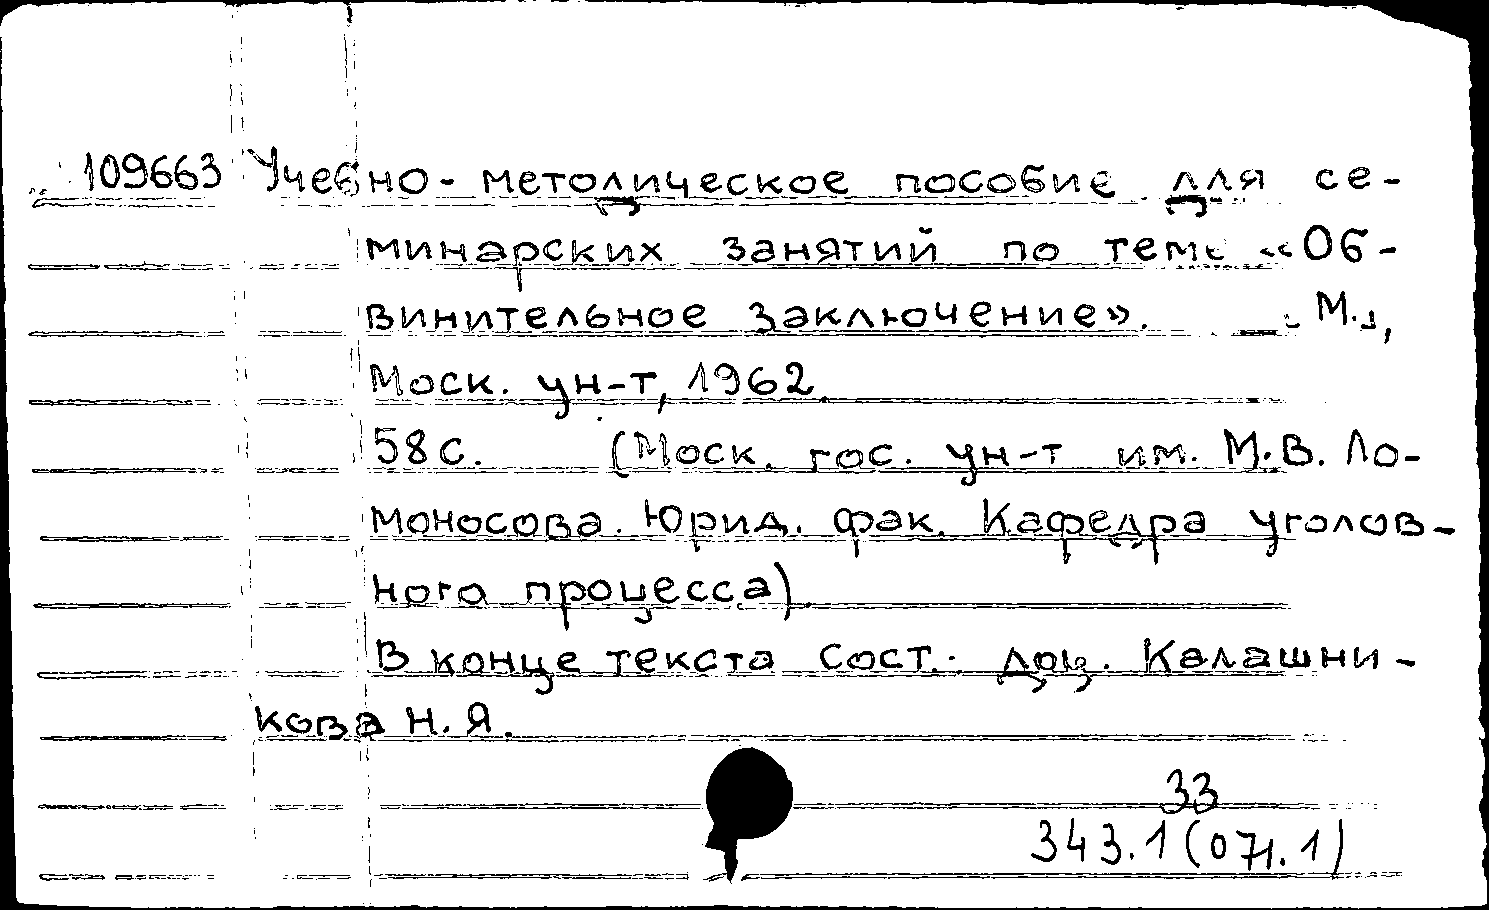 109663 Учебно-методическое пособие для се-
минарских занятий по теме «Об-
винительное заключение». М.,
Моск. ун-т, 1962.
58 с. (Моск. гос. ун-т им. М.В. Ло-
моносова. Юрид. фак. Кафедра уголов-
ного процесса)
В конце текста сост.: доц. Калашни-
кова Н. Я.
33
343.1(071.1)